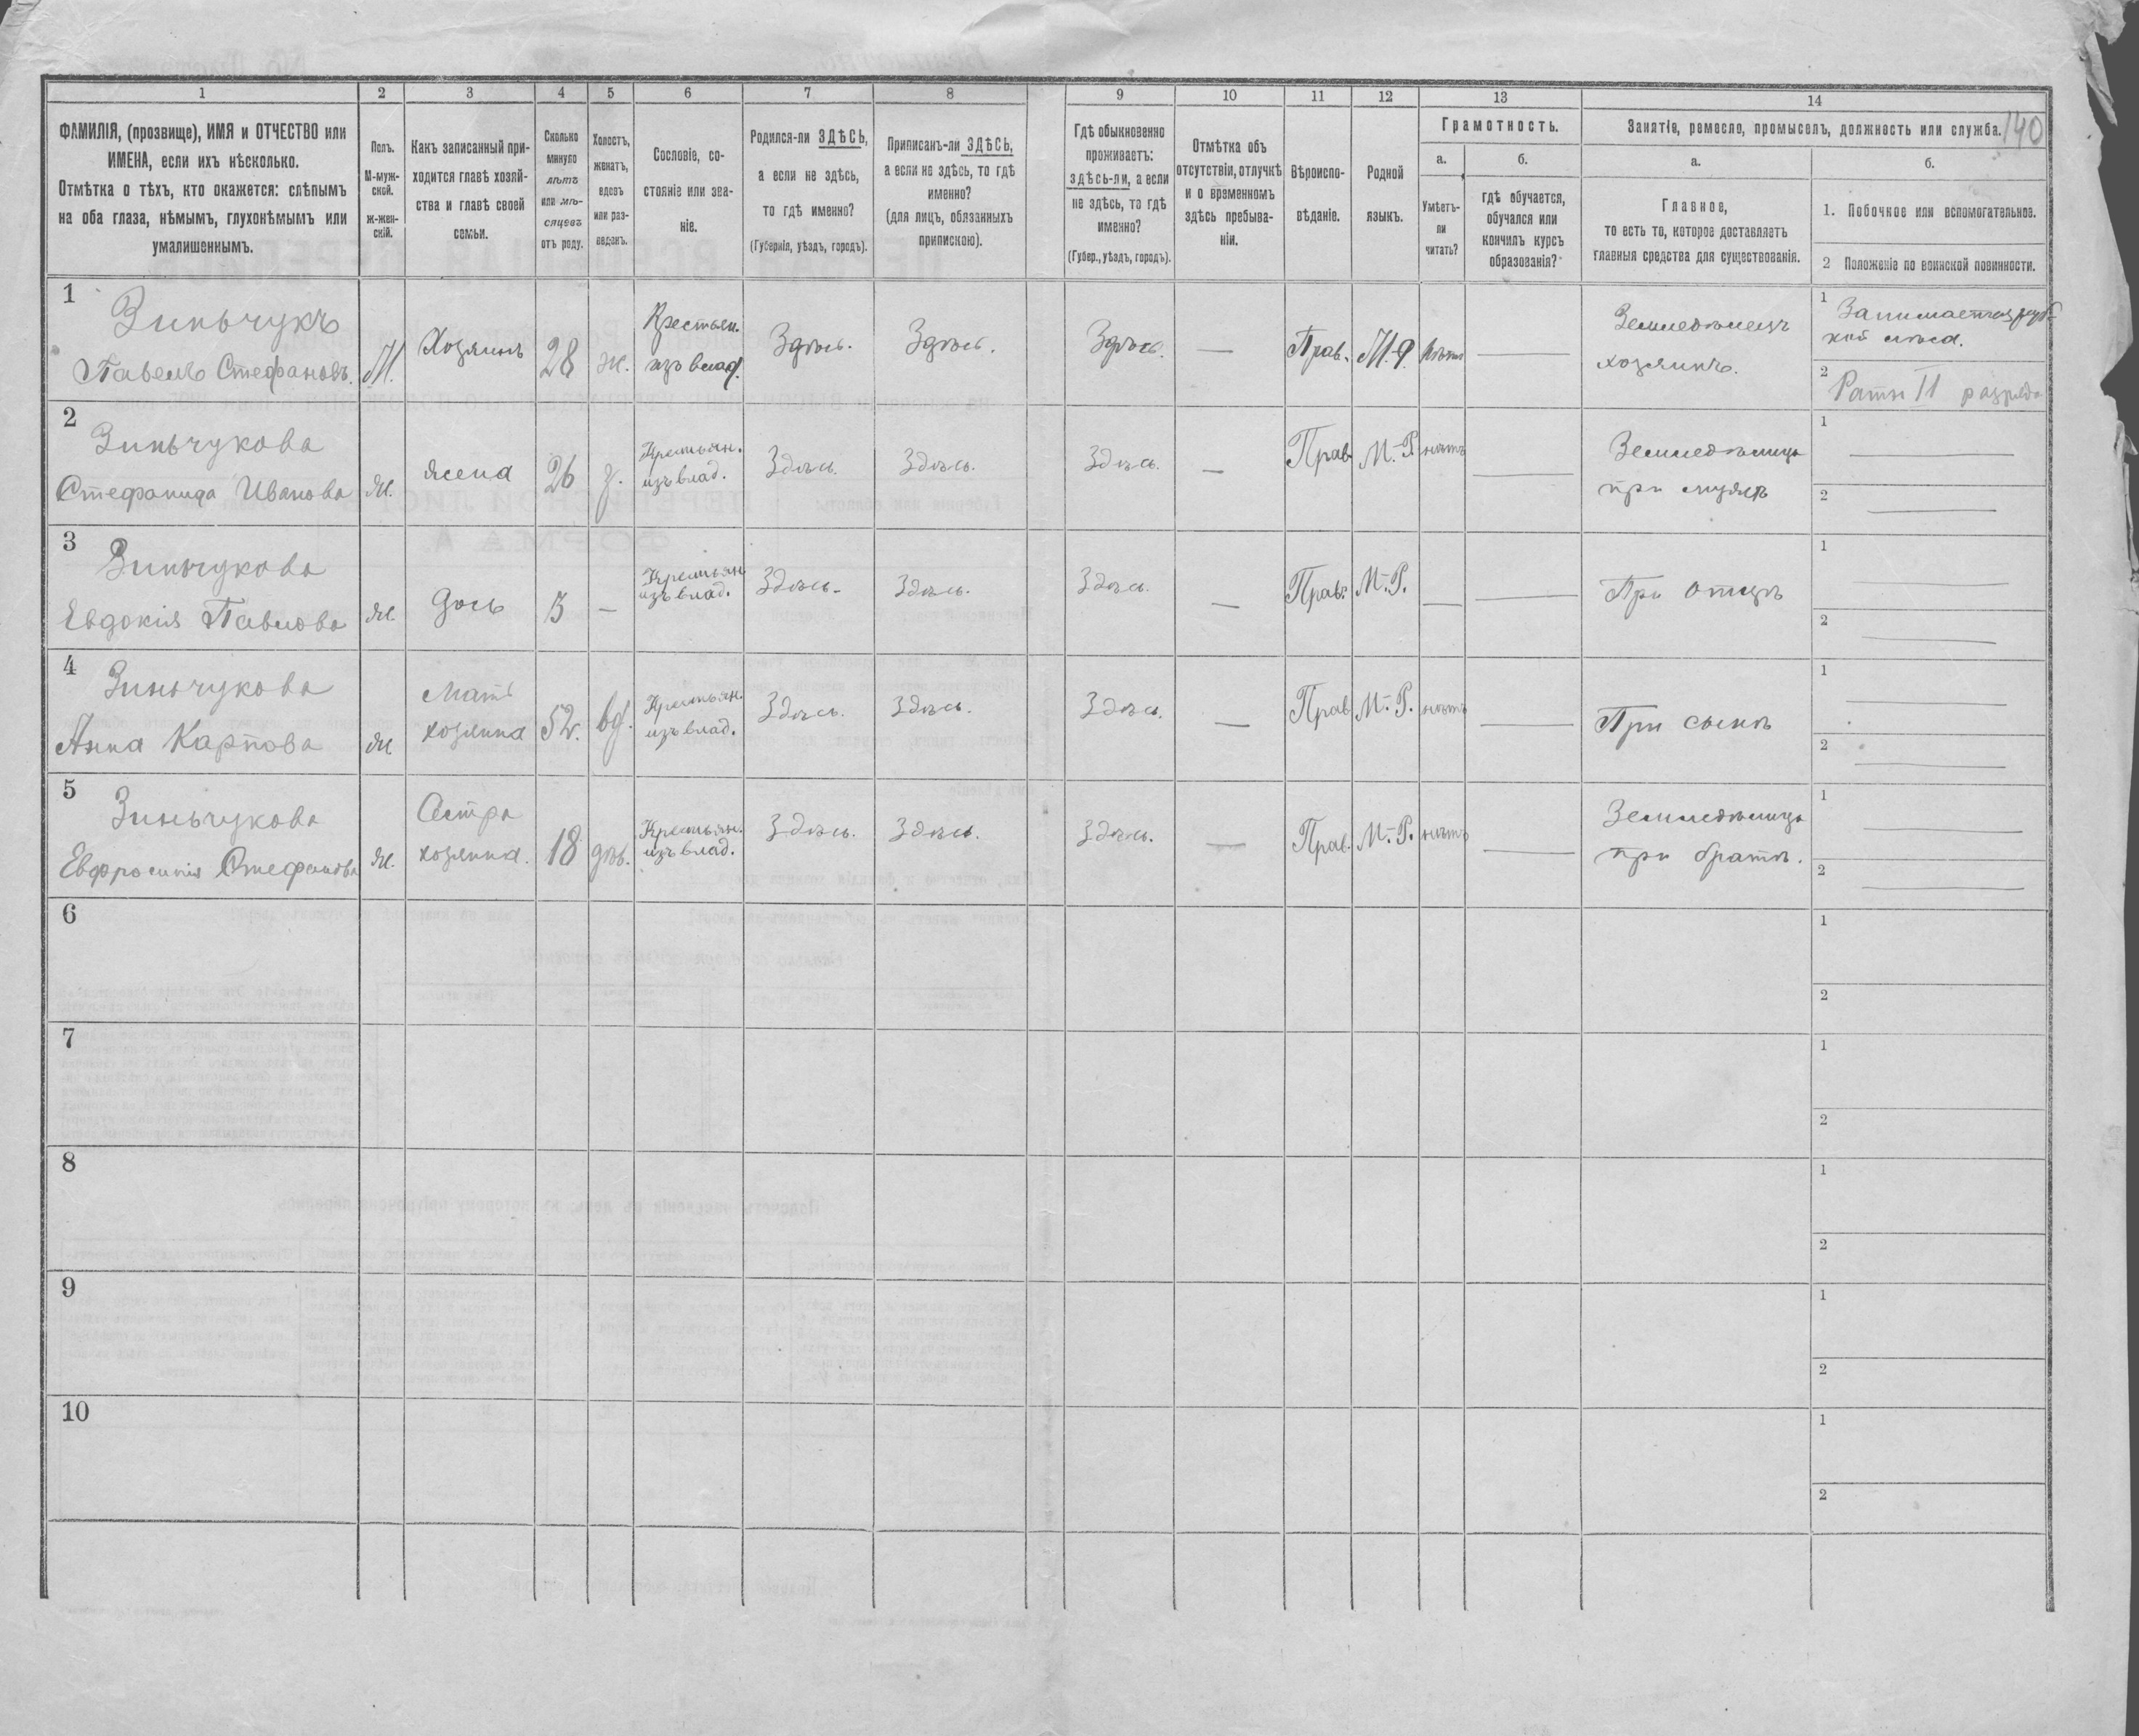 1 2 3 4 5 6 7 8 9 10 11 12 13 14
140
ФАМИЛІЯ, (прозвище), ИМЯ и ОТЧЕСТВО или
ИМЕНА, если ихъ нѣсколько.
Отмѣтка о тѣхъ, кто окажется: слѣпымъ
на оба глаза, нѣмымъ, глухонѣмымъ или
умалишеннымъ.
Полъ.
М-муж-
ской.
ж-жен-
скій.
Какъ записанный при-
ходится главѣ хозяй-
ства и главѣ своей
семьи.
Сколько
минуло
лѣтъ
или мѣ-
сяцевъ
отъ роду.
Холостъ,
женатъ,
вдовъ
или раз-
веденъ.
Сословіе, со-
стояніе или зва-
ніе.
Родился-ли ЗДѢСЬ,
а если не здѣсь,
то гдѣ именно?
(Губернія, уѣздъ, городъ).
Приписанъ-ли ЗДѢСЬ,
а если не здѣсь, то гдѣ
именно?
(для лицъ, обязанныхъ
припискою).
Гдѣ обыкновенно
проживаетъ:
здѣсь-ли, а если
не здѣсь, то гдѣ
именно?
(Губер., уѣздъ, городъ).
Отмѣтка объ
отсутствіи, отлучкѣ
и о временномъ
здѣсь пребыва-
ніи.
Вѣроиспо-
вѣданіе.
Родной
языкъ.
Грамотность.
а.
Умѣетъ-
ли
читать?
б.
гдѣ обучается,
обучался или
кончилъ курсъ
образованія?
Занятіе, ремесло, промыселъ, должность или служба.
а.
Главное,
то есть то, которое доставляетъ
главныя средства для существованія.
б.
1. Побочное или вспомогательное.
2 Положеніе по воинской повинности.
1
Зиньчукъ
Павелъ Стефановъ.
М.
Хозяинъ
28
ж.
Крестьян.
изъ влад.
Здѣсь.
Здѣсь.
Здѣсь.
—
Прав.
М.-Р.
нѣтъ
—
Земледѣлецъ
хозяинъ.
1 Занимается руб-
кой лѣса.
2 Ратн II разряда
2
Зиньчукова
Стефанида Иванова
Ж.
жена
26
з.
Крестьян.
изъ влад.
Здѣсь.
Здѣсь.
Здѣсь.
—
Прав
М.-Р.
нѣтъ
—
Земледѣлица
при мужѣ
1 —
2 —
3
Зиньчукова
Евдокія Павлова
Ж.
дочь
3
—
Крестьян
изъ влад.
Здѣсь.
Здѣсь.
Здѣсь.
—
Прав.
М.-Р.
—
—
При отцѣ
1 —
2 —
4
Зиньчукова
Анна Карпова
Ж
Мать
хозяина
52.
вд.
Крестьян.
изъ влад.
Здѣсь.
Здѣсь.
Здѣсь.
—
Прав
М.-Р.
нѣтъ
—
При сынѣ
1 —
2 —
5
Зиньчукова
Евфросинія Стефанова
Ж.
Сестра
хозяина.
18
дѣв.
Крестьян.
изъ влад.
Здѣсь.
Здѣсь.
Здѣсь.
—
Прав.
М.-Р.
нѣтъ
—
Земледѣлица
при братѣ.
1 —
2 —
6
1
2
7
1
2
8
1
2
9
1
2
10
1
2